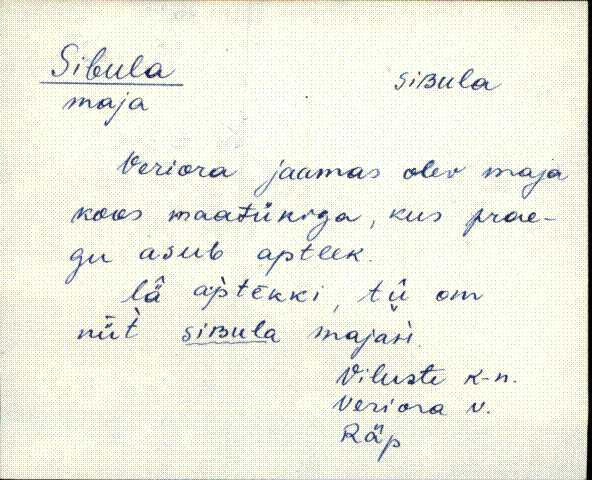 Sibula siBula
maja
Veriora jaamas olev maja
koos maatükiga, kus prae-
gu asub apteek.
lä aptekki, tü om
nüt siBula majaſi.
Viluste k-n.
Veriora v.
Räp